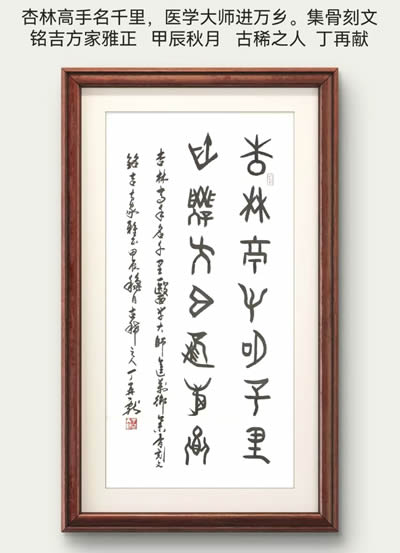 杏林高手名千里，医学大师进万乡。集骨刻文
铭吉方家雅正 甲辰秋月 古稀之人 丁再献
杏林高手名千里
醫學大師進萬鄉
杏林高手名千里醫学大師進萬鄉集骨刻文
銘吉方家雅正甲辰秋月古稀之人丁再献